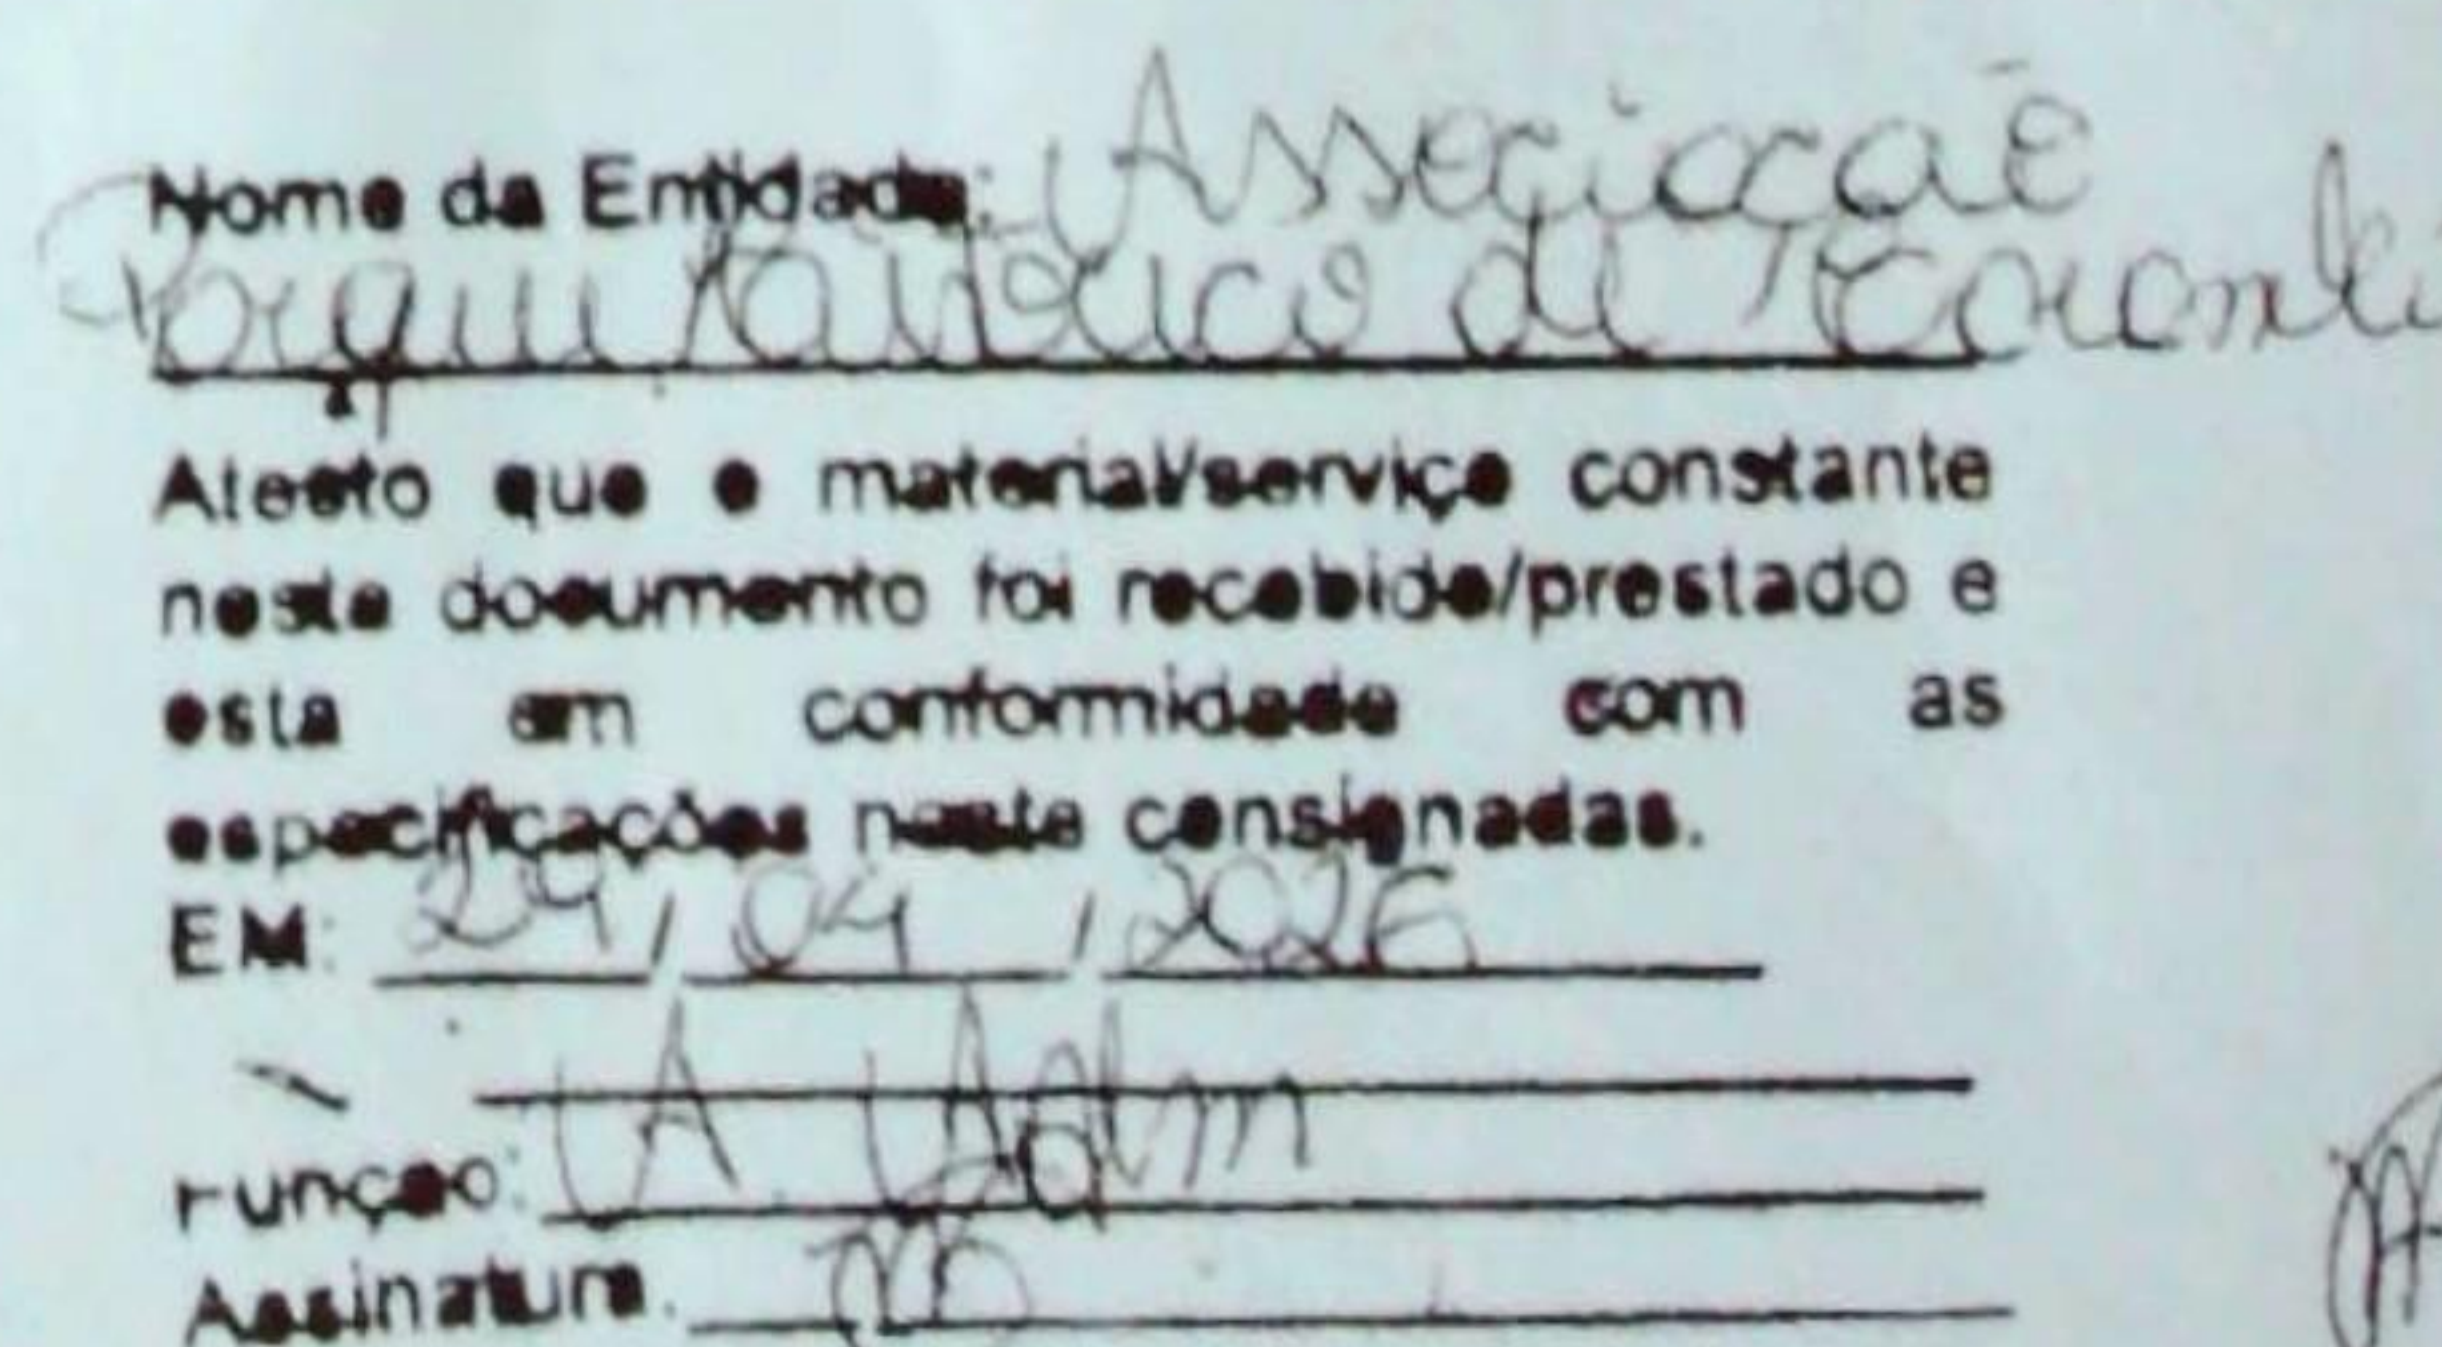 Nome da Entidade: Associação
Parque Aquático de
Atesto que o material/serviço constante
neste documento foi recebido/prestado e
esta em conformidade com as
especificações neste consignadas.
EM: 29/04/2026
Função: A. Adm
Assinatura.